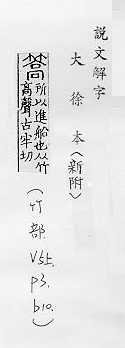 說文解字
大徐本(新附)
篙 所以進船也从竹
高聲古牢切
(竹部.V5上.P3.b10.)